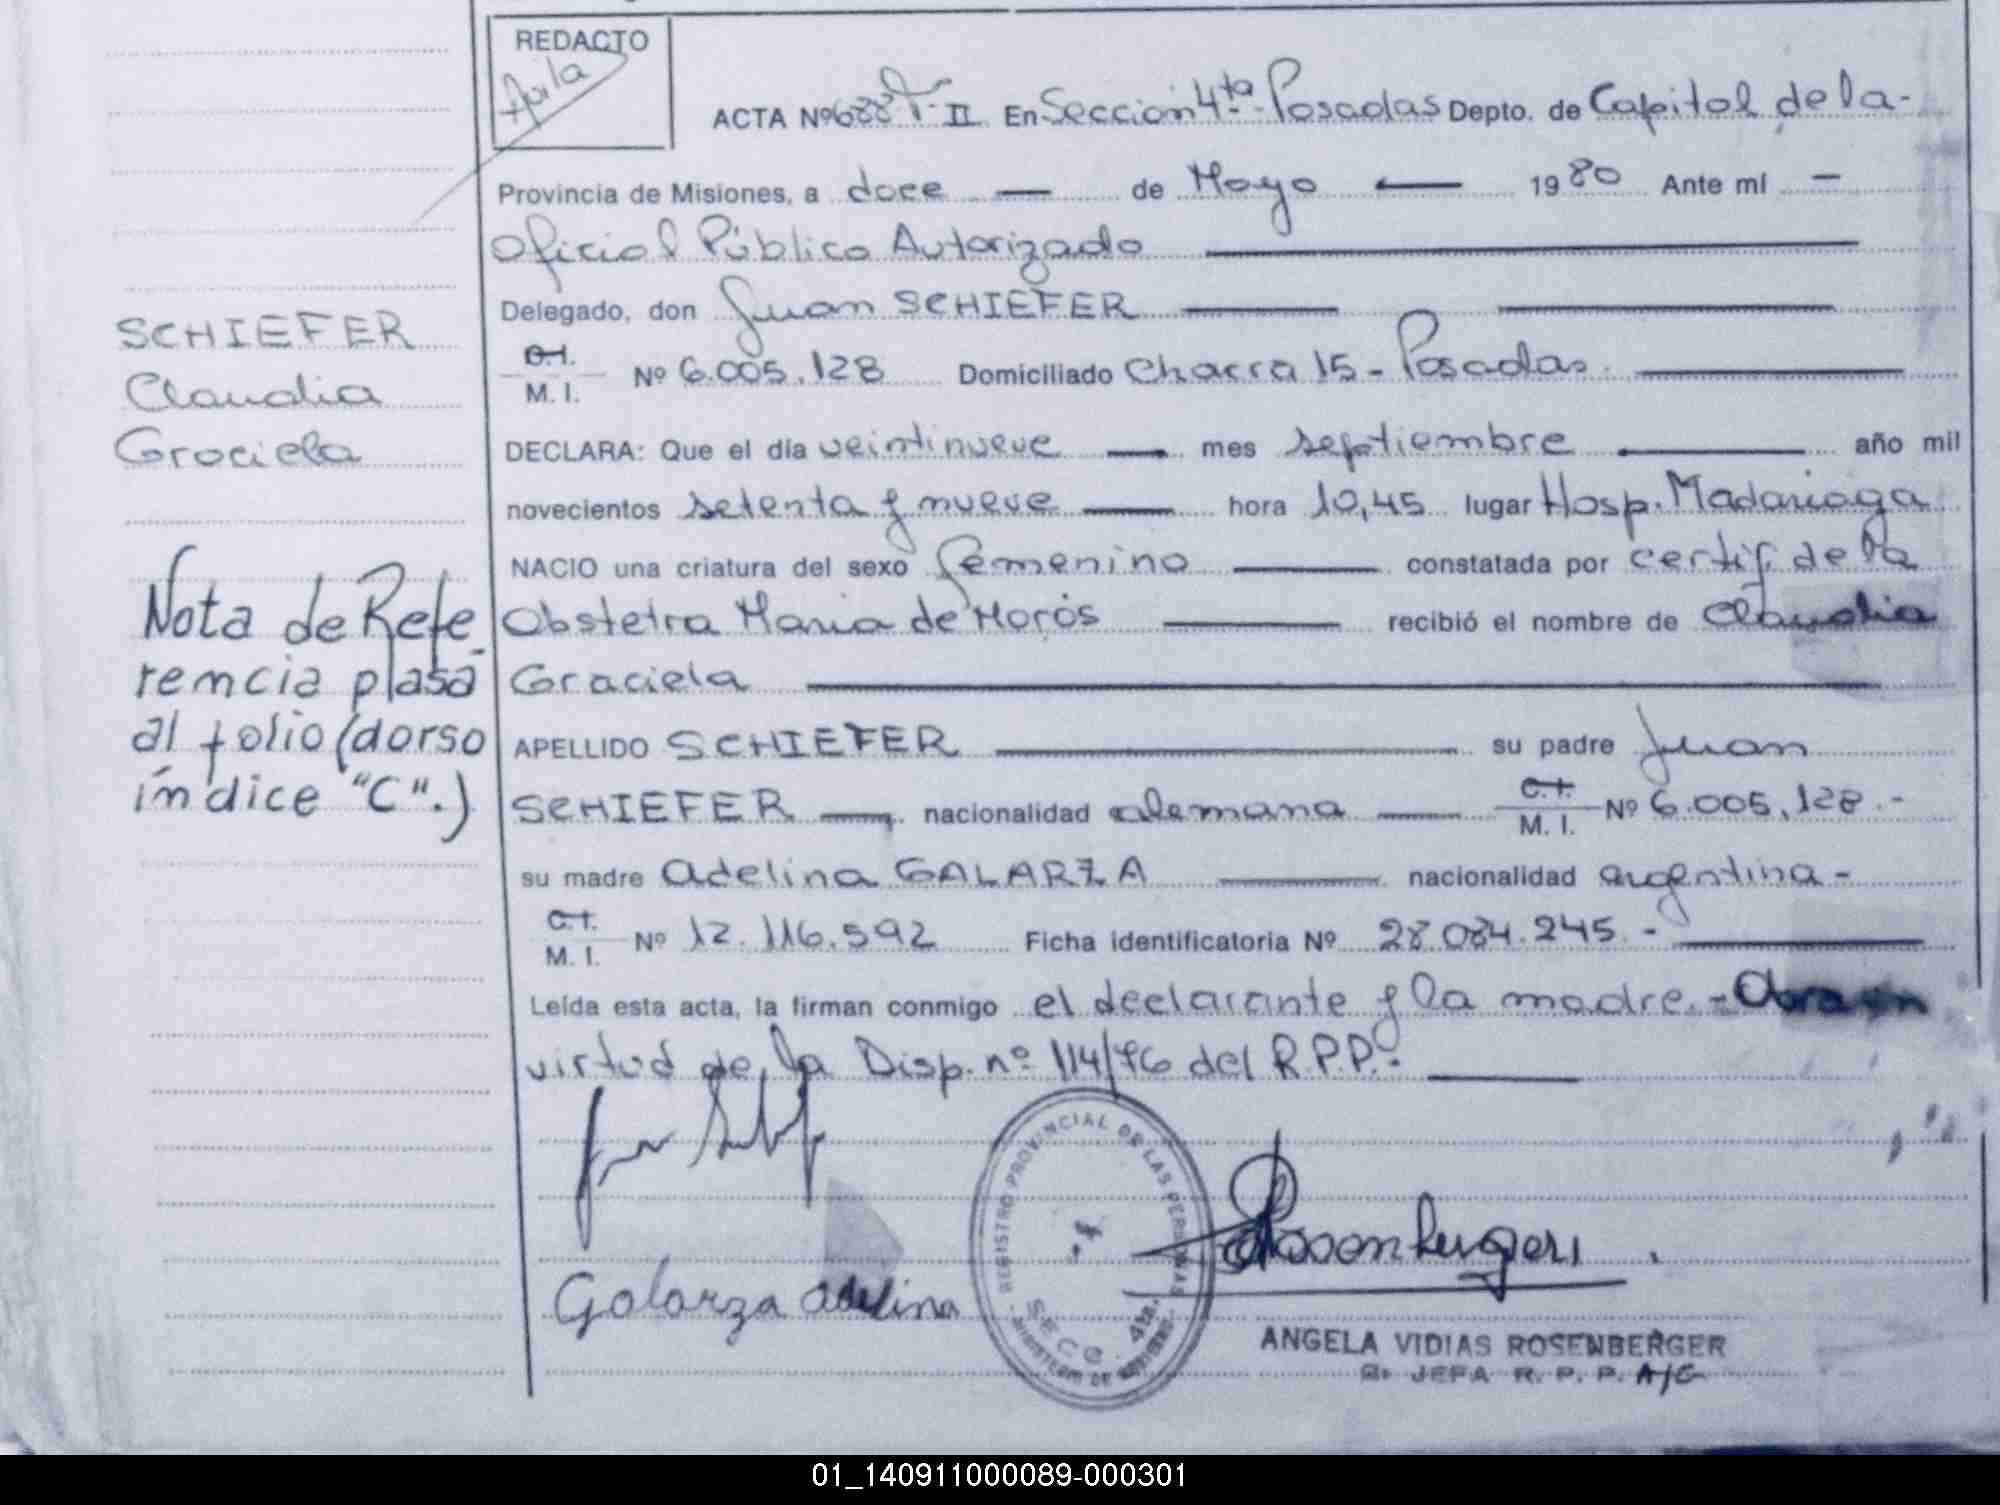 REDACTO
Avila
ACTA Nº 688 T-II En Sección 4ta- Posadas Depto. de Capital de la-
Provincia de Misiones, a doce — de Mayo — 1980 Ante mí —
Oficial Público Autorizado
Delegado, don Juan SCHIEFER
C.I.
M. I. Nº 6.005.128 Domiciliado Chacra 15 - Posadas.
DECLARA: Que el día veintinueve — mes septiembre — año mil
novecientos setenta y nueve — hora 10,45 lugar Hosp. Madariaga
NACIO una criatura del sexo femenino — constatada por certif. de la
Obstetra Maria de Morós — recibió el nombre de Claudia
Graciela
APELLIDO SCHIEFER — su padre Juan
SCHIEFER — nacionalidad alemana — C.I.
M. I. Nº 6.005.128.-
su madre Adelina GALARZA — nacionalidad argentina-
C.I.
M. I. Nº 12.116.592 Ficha identificatoria Nº 28.084.245.-
Leída esta acta, la firman conmigo el declarante y la madre.-
virtud de la Disp. nº 114/76 del R.P.P.-
SCHIEFER
Claudia
Graciela
Nota de Refe-
rencia plasa
al folio (dorso
índice "C".)
Galarza Adelina
REGISTRO PROVINCIAL DE LAS PERSONAS
SECC. 4ta.
MINISTERIO DE GOBIERNO
Rosenberger
ANGELA VIDIAS ROSENBERGER
JEFA R. P. P. A/C
01_140911000089-000301